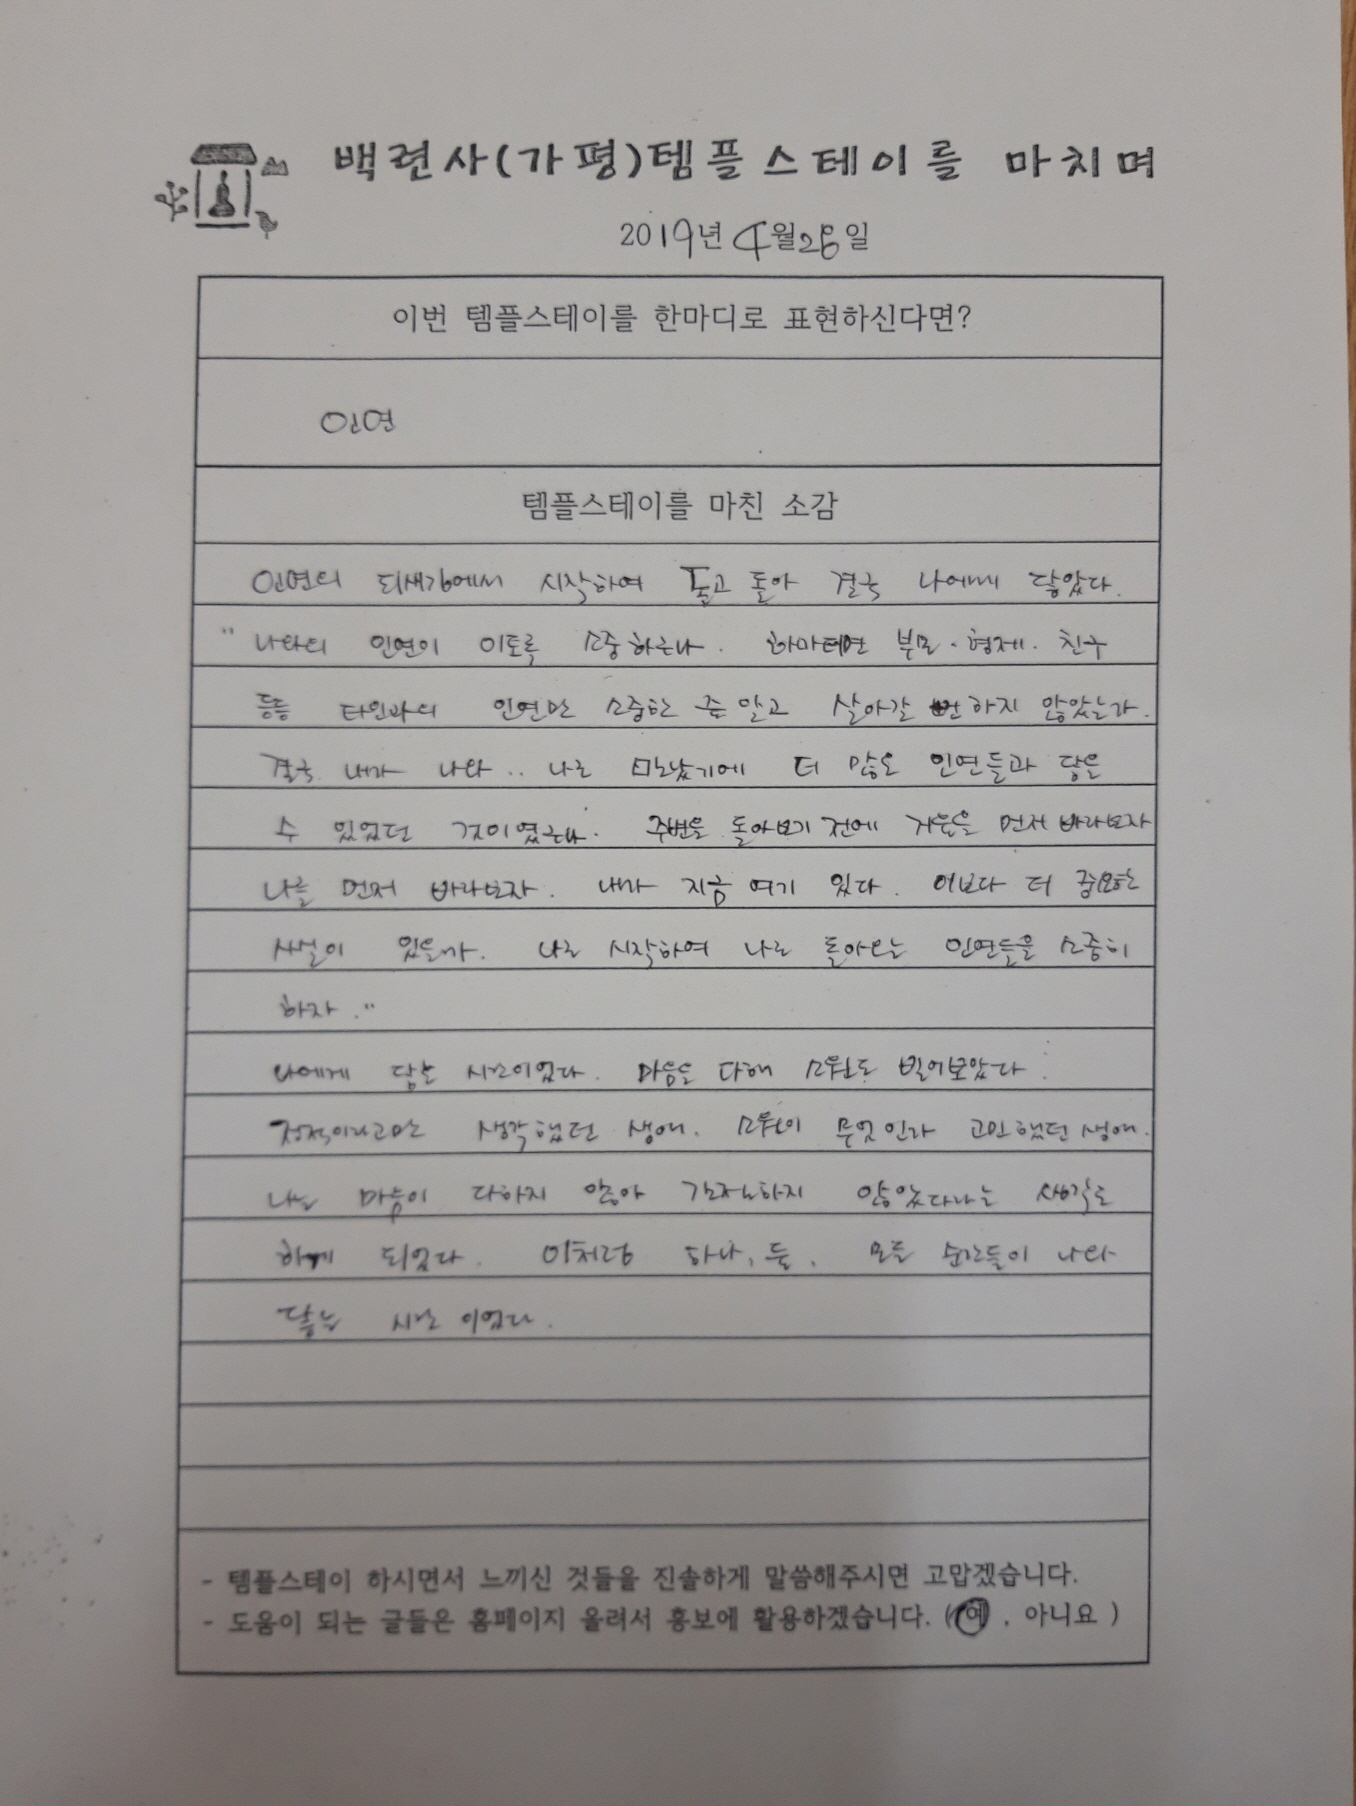 백련사(가평)템플스테이를 마치며
2019년 4월28일
이번 템플스테이를 한마디로 표현하신다면?
인연
템플스테이를 마친 소감
인연의 되새김에서 시작하여 돌고 돌아 결국 나에께 닿았다.
" 나와의 인연이 이토록 소중하구나. 하마터면 부모·형제·친구
등등 타인과의 인연만 소중한 줄 알고 살아갈 뻔 하지 않았는가.
결국 내가 나와.. 나로 만났기에 더 많은 인연들과 닿을
수 있었던 것이였구나. 주변을 돌아보기 전에 거울을 먼저 바라보자
나를 먼저 바라보자. 내가 지금 여기 있다. 이보다 더 중요한
사실이 있을까. 나로 시작하여 나로 돌아오는 인연들을 소중히
하자."
나에게 닿는 시간이었다. 마음을 다해 소원도 빌어보았다.
정적이라고만 생각했던 생애. 소원이 무엇인가 고민했던 생애.
나는 마음이 다하지 않아 간절하지 않았다라는 생각도
하게 되었다. 이처럼 하나, 둘, 모든 순간들이 나와
닿는 시간이었다.
- 템플스테이 하시면서 느끼신 것들을 진솔하게 말씀해주시면 고맙겠습니다.
- 도움이 되는 글들은 홈페이지 올려서 홍보에 활용하겠습니다. (예 . 아니요 )